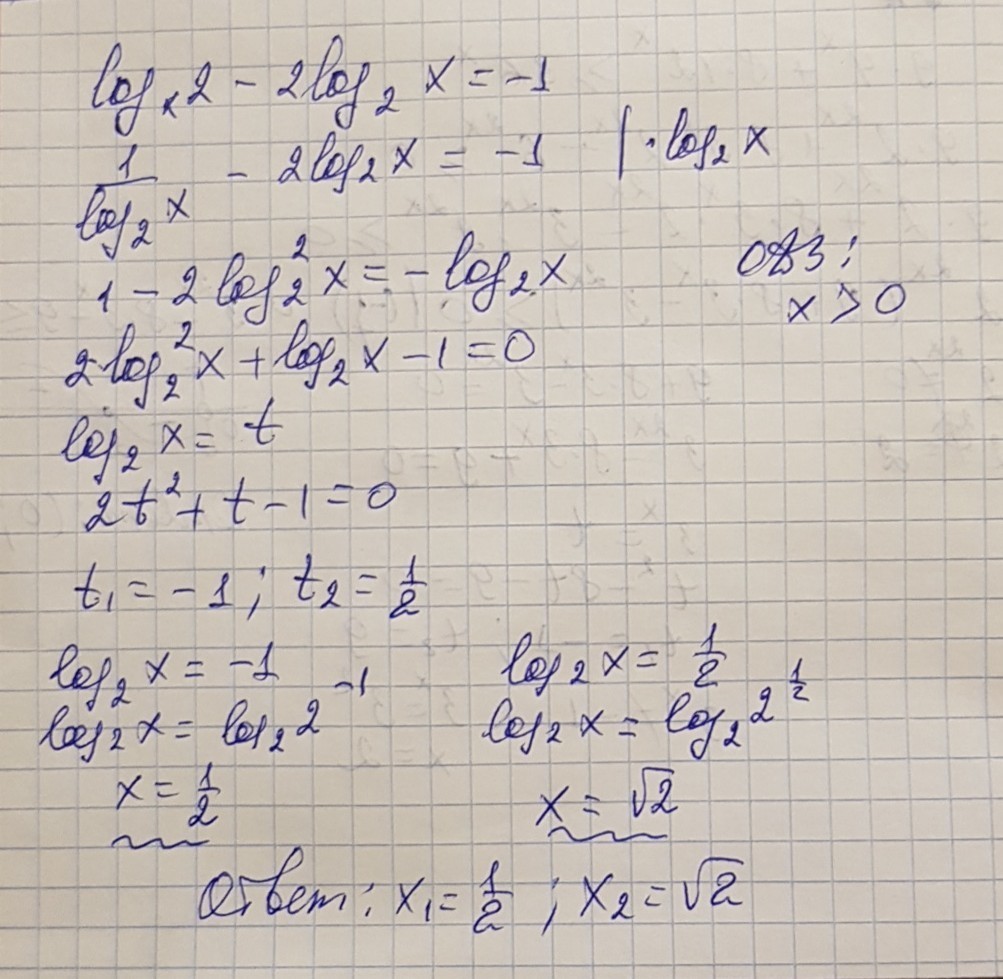 logₓ2 - 2log₂x = -1
1/log₂x - 2log₂x = -1 | · log₂x
1 - 2log₂²x = -log₂x
ОДЗ:
x > 0
2·log₂²x + log₂x - 1 = 0
log₂x = t
2t² + t - 1 = 0
t₁ = -1; t₂ = 1/2
log₂x = -1
log₂x = log₂2⁻¹
x = 1/2
log₂x = 1/2
log₂x = log₂2^(1/2)
x = √2
Ответ: x₁ = 1/2; x₂ = √2